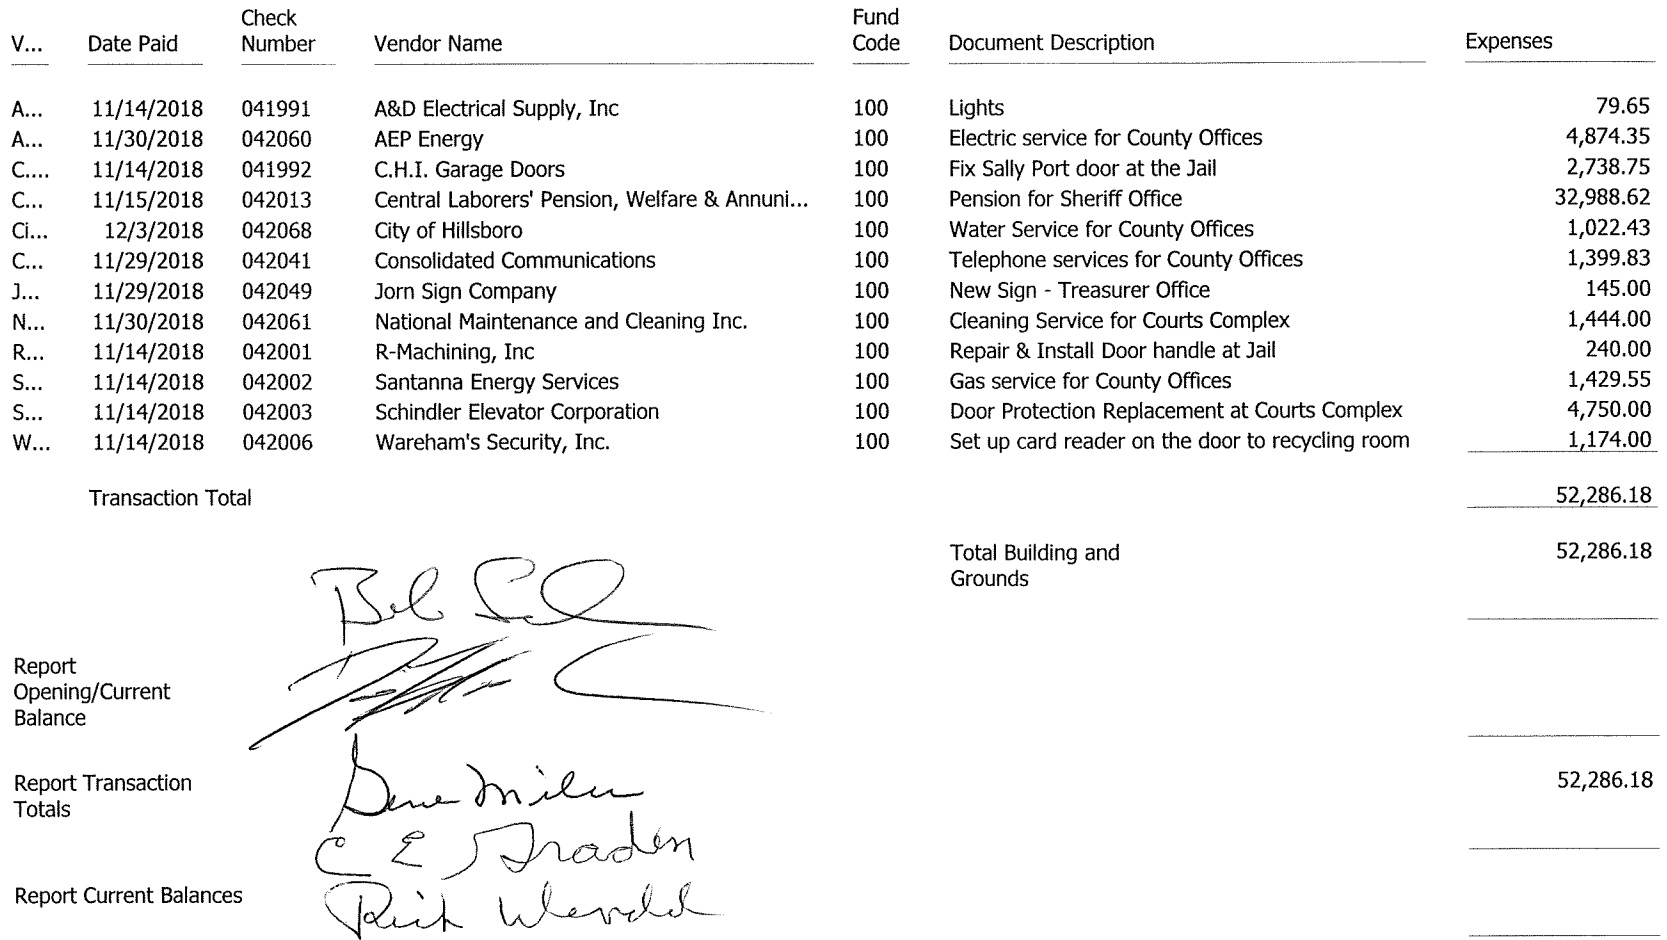 V... Date Paid Check Number Vendor Name Fund Code Document Description Expenses
A... 11/14/2018 041991 A&D Electrical Supply, Inc 100 Lights 79.65
A... 11/30/2018 042060 AEP Energy 100 Electric service for County Offices 4,874.35
C.... 11/14/2018 041992 C.H.I. Garage Doors 100 Fix Sally Port door at the Jail 2,738.75
C... 11/15/2018 042013 Central Laborers' Pension, Welfare & Annuni... 100 Pension for Sheriff Office 32,988.62
Ci... 12/3/2018 042068 City of Hillsboro 100 Water Service for County Offices 1,022.43
C... 11/29/2018 042041 Consolidated Communications 100 Telephone services for County Offices 1,399.83
J... 11/29/2018 042049 Jorn Sign Company 100 New Sign - Treasurer Office 145.00
N... 11/30/2018 042061 National Maintenance and Cleaning Inc. 100 Cleaning Service for Courts Complex 1,444.00
R... 11/14/2018 042001 R-Machining, Inc 100 Repair & Install Door handle at Jail 240.00
S... 11/14/2018 042002 Santanna Energy Services 100 Gas service for County Offices 1,429.55
S... 11/14/2018 042003 Schindler Elevator Corporation 100 Door Protection Replacement at Courts Complex 4,750.00
W... 11/14/2018 042006 Wareham's Security, Inc. 100 Set up card reader on the door to recycling room 1,174.00
Transaction Total 52,286.18
Total Building and 52,286.18
Grounds
Bob
Report
Opening/Current
Balance
Report Transaction 52,286.18
Totals
Gene Miler
C E Graden
Report Current Balances
Rick Wendel